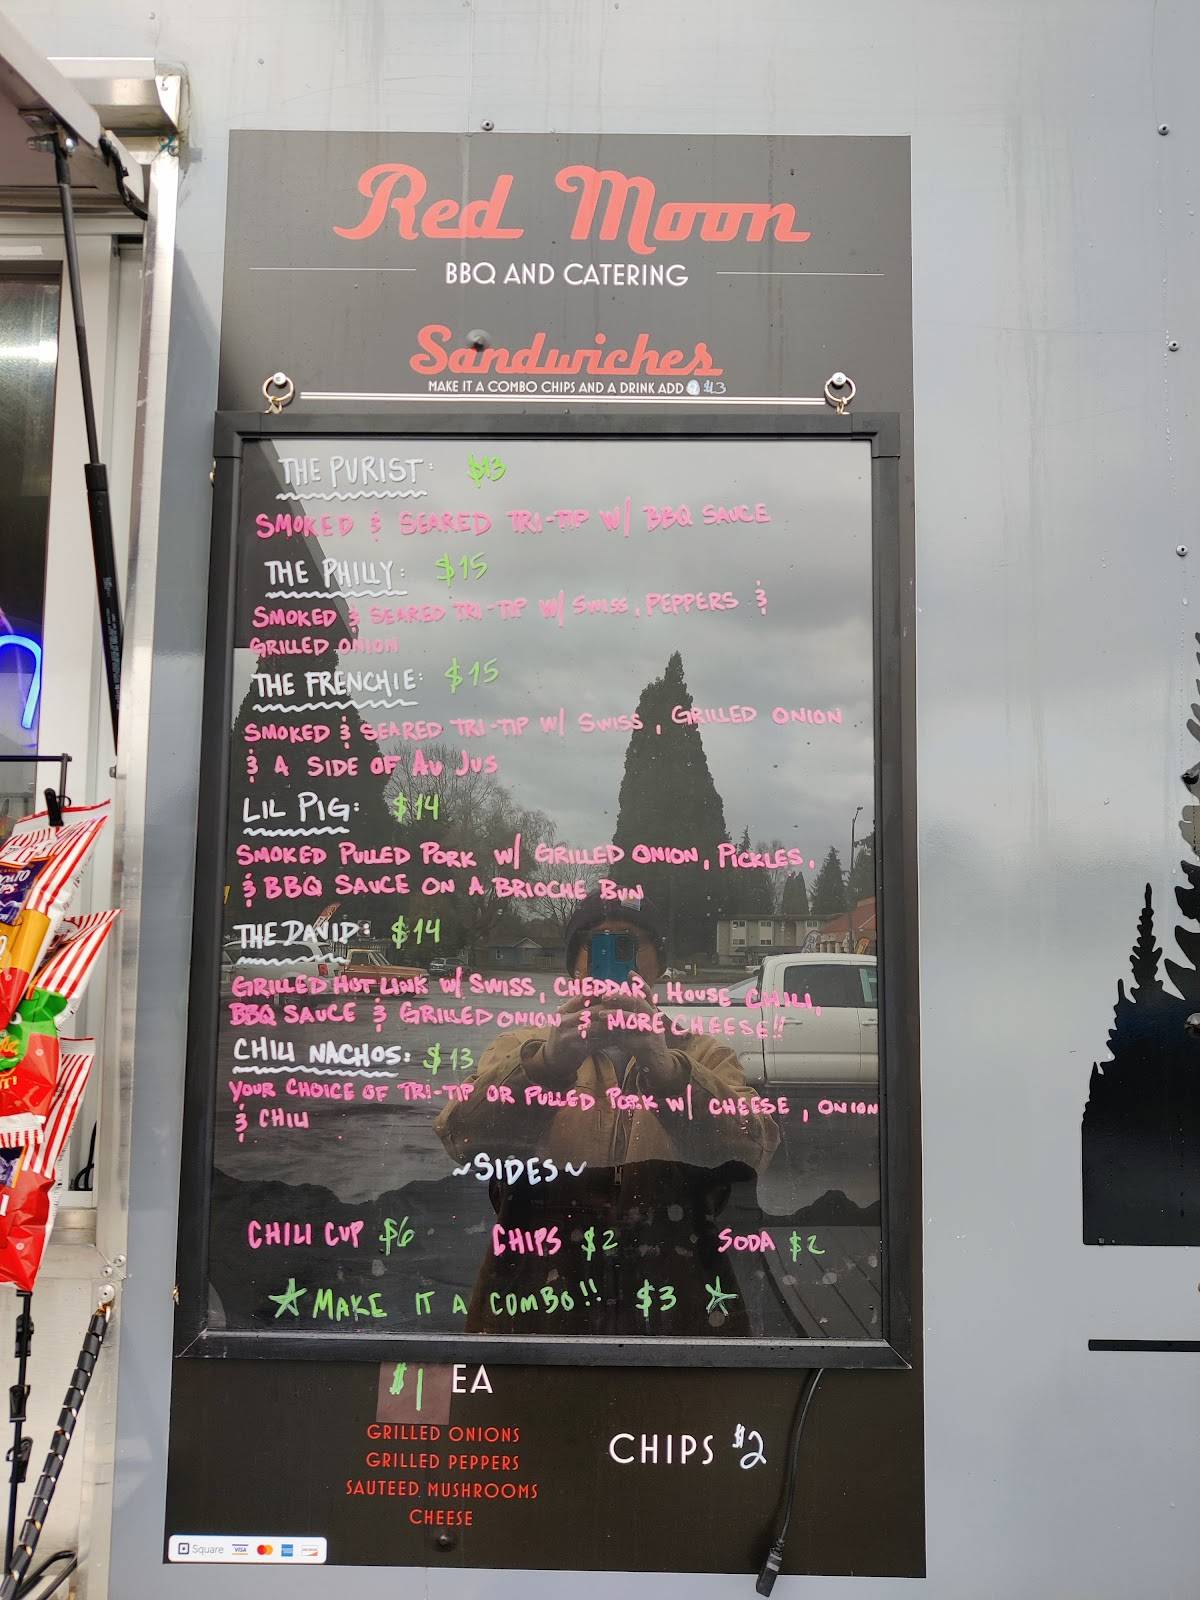 Red Moon
BBQ AND CATERING
Sandwiches
MAKE IT A COMBO CHIPS AND A DRINK ADD $3
THE PURIST: $13
SMOKED & SEARED TRI-TIP W/ BBQ SAUCE
THE PHILLY: $15
SMOKED & SEARED TRI-TIP W/ SWISS, PEPPERS &
GRILLED ONION
THE FRENCHIE: $15
SMOKED & SEARED TRI-TIP W/ SWISS, GRILLED ONION
& A SIDE OF AU JUS
LIL PIG: $14
SMOKED PULLED PORK W/ GRILLED ONION, PICKLES,
& BBQ SAUCE ON A BRIOCHE BUN
THE DAVID: $14
GRILLED HOT LINK W/ SWISS, CHEDDAR, HOUSE CHILI,
BBQ SAUCE & GRILLED ONION & MORE CHEESE!!
CHILI NACHOS: $13
YOUR CHOICE OF TRI-TIP OR PULLED PORK W/ CHEESE, ONION
& CHILI
~SIDES~
CHILI CUP $6 CHIPS $2 SODA $2
☆ MAKE IT A COMBO!! $3 ☆
$1 EA
GRILLED ONIONS
GRILLED PEPPERS
SAUTEED MUSHROOMS
CHEESE
CHIPS $2
Square VISA